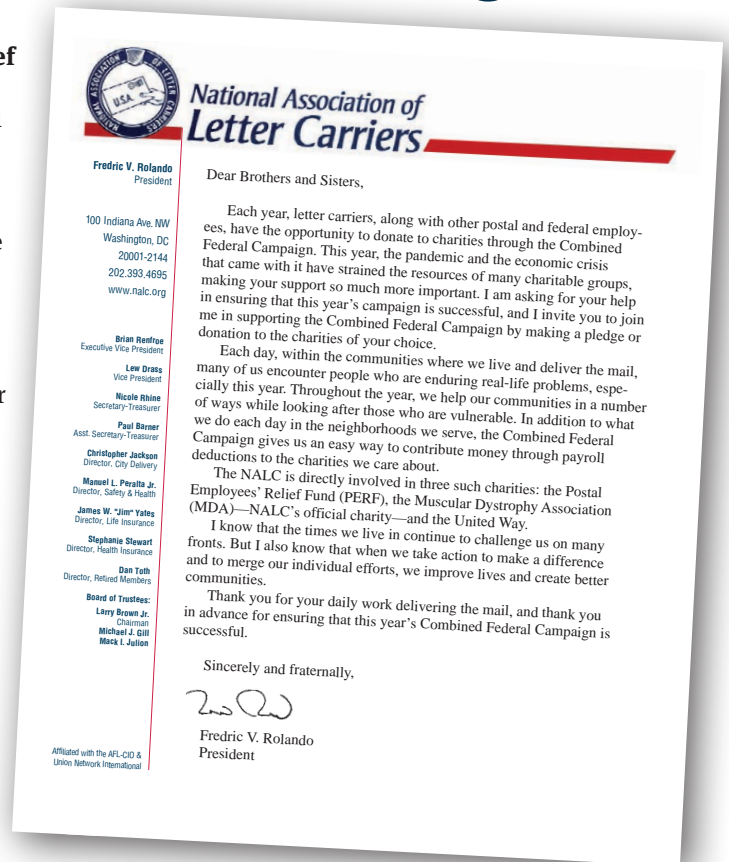 ef
e
r
NATIONAL ASSOCIATION OF LETTER CARRIERS
U.S.A.
National Association of
Letter Carriers
Fredric V. Rolando
President
100 Indiana Ave. NW
Washington, DC
20001-2144
202.393.4695
www.nalc.org
Brian Renfroe
Executive Vice President
Lew Drass
Vice President
Nicole Rhine
Secretary-Treasurer
Paul Barner
Asst. Secretary-Treasurer
Christopher Jackson
Director, City Delivery
Manuel L. Peralta Jr.
Director, Safety & Health
James W. "Jim" Yates
Director, Life Insurance
Stephanie Stewart
Director, Health Insurance
Dan Toth
Director, Retired Members
Board of Trustees:
Larry Brown Jr.
Chairman
Michael J. Gill
Mack I. Julion
Affiliated with the AFL-CIO &
Union Network International
Dear Brothers and Sisters,
Each year, letter carriers, along with other postal and federal employ-
ees, have the opportunity to donate to charities through the Combined
Federal Campaign. This year, the pandemic and the economic crisis
that came with it have strained the resources of many charitable groups,
making your support so much more important. I am asking for your help
in ensuring that this year's campaign is successful, and I invite you to join
me in supporting the Combined Federal Campaign by making a pledge or
donation to the charities of your choice.
Each day, within the communities where we live and deliver the mail,
many of us encounter people who are enduring real-life problems, espe-
cially this year. Throughout the year, we help our communities in a number
of ways while looking after those who are vulnerable. In addition to what
we do each day in the neighborhoods we serve, the Combined Federal
Campaign gives us an easy way to contribute money through payroll
deductions to the charities we care about.
The NALC is directly involved in three such charities: the Postal
Employees' Relief Fund (PERF), the Muscular Dystrophy Association
(MDA)—NALC's official charity—and the United Way.
I know that the times we live in continue to challenge us on many
fronts. But I also know that when we take action to make a difference
and to merge our individual efforts, we improve lives and create better
communities.
Thank you for your daily work delivering the mail, and thank you
in advance for ensuring that this year's Combined Federal Campaign is
successful.
Sincerely and fraternally,
Fredric V. Rolando
President